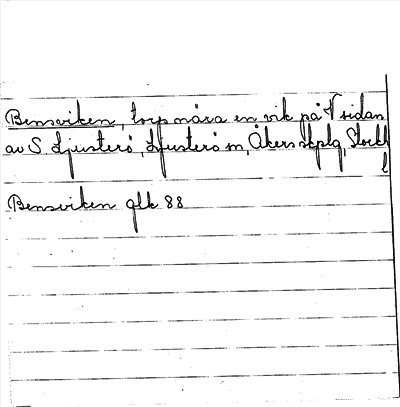 Bensviken, torp nära en vik på V sidan
av S Ljusterö, Ljusterö sn, Åkers skplg, Stockh
l
Bensviken glk 88